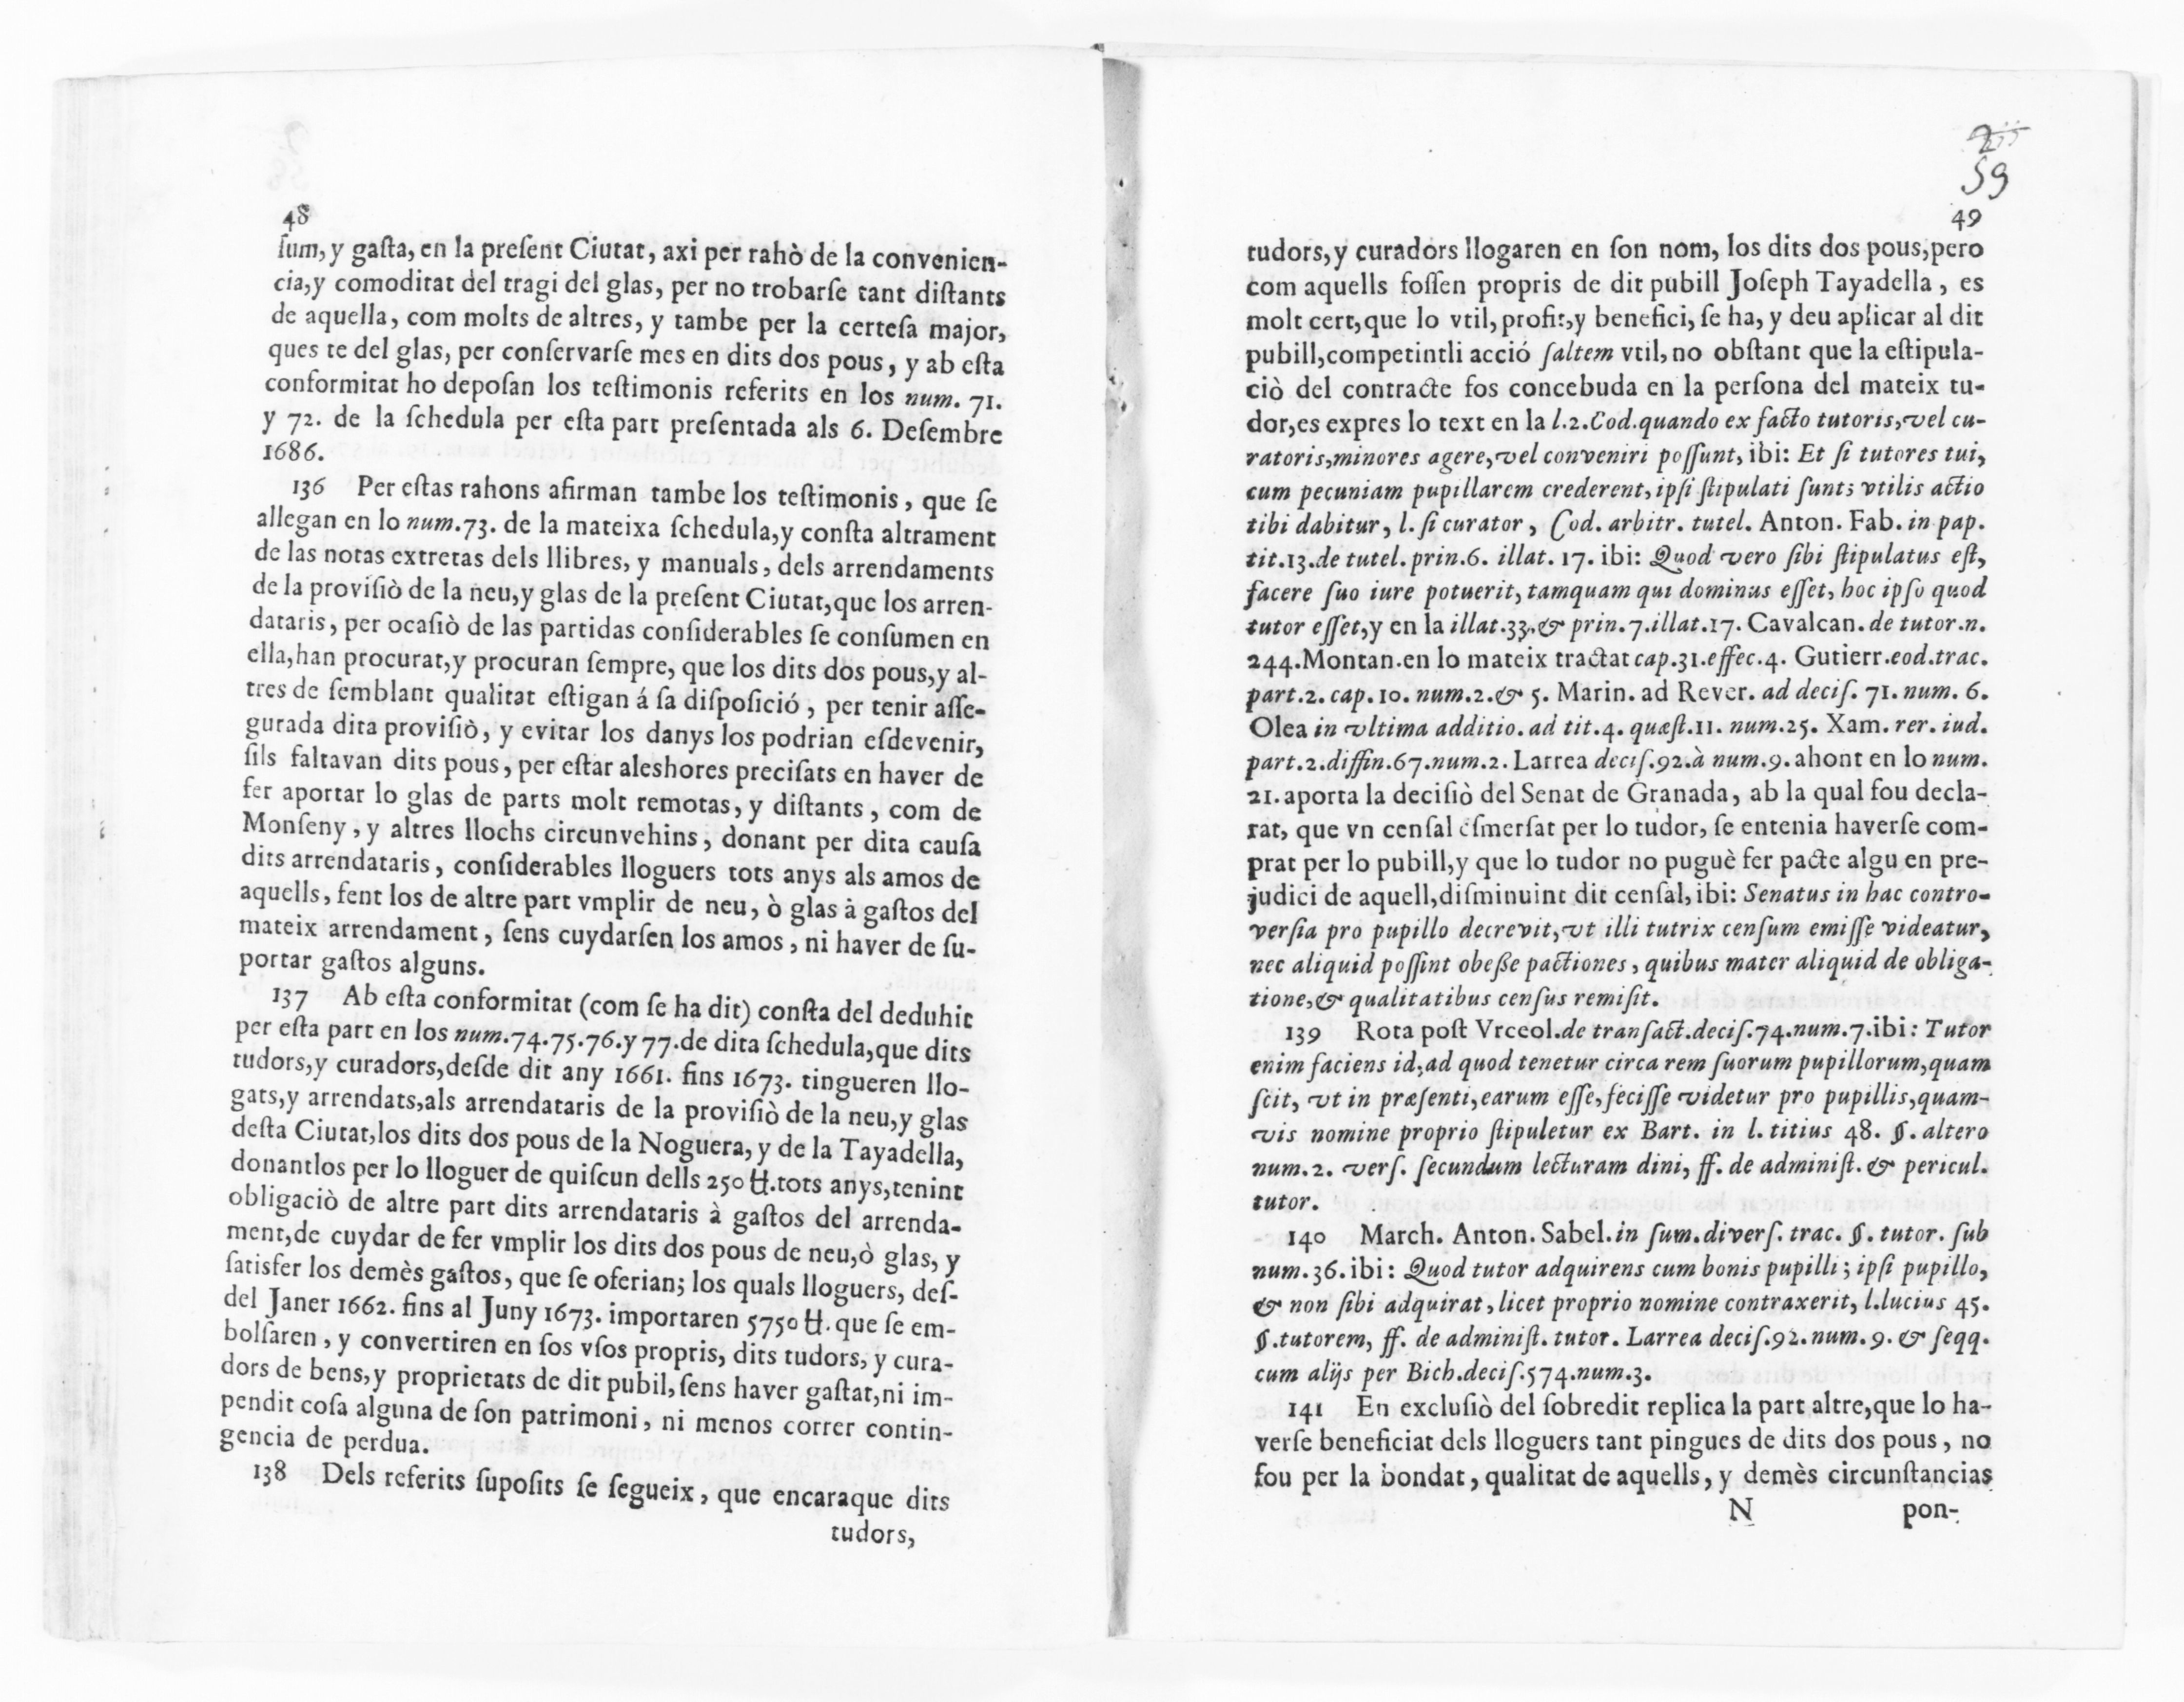 48
ſum, y gaſta, en la preſent Ciutat, axi per rahò de la convenien-
cia, y comoditat del tragi del glas, per no trobarſe tant diſtants
de aquella, com molts de altres, y tambe per la certeſa major,
ques te del glas, per conſervarſe mes en dits dos pous, y ab eſta
conformitat ho depoſan los teſtimonis referits en los num. 71.
y 72. de la ſchedula per eſta part preſentada als 6. Deſembre
1686.
136 Per eſtas rahons afirman tambe los teſtimonis, que ſe
allegan en lo num. 73. de la mateixa ſchedula, y conſta altrament
de las notas extretas dels llibres, y manuals, dels arrendaments
de la proviſiò de la neu, y glas de la preſent Ciutat, que los arren-
dataris, per ocaſiò de las partidas conſiderables ſe conſumen en
ella, han procurat, y procuran ſempre, que los dits dos pous, y al-
tres de ſemblant qualitat eſtigan á ſa diſpoſició, per tenir aſſe-
gurada dita proviſiò, y evitar los danys los podrian eſdevenir,
ſils faltavan dits pous, per eſtar aleshores preciſats en haver de
fer aportar lo glas de parts molt remotas, y diſtants, com de
Monſeny, y altres llochs circunvehins, donant per dita cauſa
dits arrendataris, conſiderables lloguers tots anys als amos de
aquells, fent los de altre part vmplir de neu, ò glas à gaſtos del
mateix arrendament, ſens cuydarſen los amos, ni haver de ſu-
portar gaſtos alguns.
137 Ab eſta conformitat (com ſe ha dit) conſta del deduhit
per eſta part en los num. 74. 75. 76. y 77. de dita ſchedula, que dits
tudors, y curadors, deſde dit any 1661. fins 1673. tingueren llo-
gats, y arrendats, als arrendataris de la proviſiò de la neu, y glas
deſta Ciutat, los dits dos pous de la Noguera, y de la Tayadella,
donantlos per lo lloguer de quiſcun dells 250 ℔. tots anys, tenint
obligaciò de altre part dits arrendataris à gaſtos del arrenda-
ment, de cuydar de fer vmplir los dits dos pous de neu, ò glas, y
ſatisfer los demès gaſtos, que ſe oferian; los quals lloguers, deſ-
del Janer 1662. fins al Juny 1673. importaren 5750 ℔. que ſe em-
bolſaren, y convertiren en ſos vſos propris, dits tudors, y cura-
dors de bens, y proprietats de dit pubil, ſens haver gaſtat, ni im-
pendit coſa alguna de ſon patrimoni, ni menos correr contin-
gencia de perdua.
138 Dels referits ſupoſits ſe ſegueix, que encaraque dits
tudors,
59
49
tudors, y curadors llogaren en ſon nom, los dits dos pous, pero
com aquells foſſen propris de dit pubill Joſeph Tayadella, es
molt cert, que lo vtil, profit, y benefici, ſe ha, y deu aplicar al dit
pubill, competintli acció ſaltem vtil, no obſtant que la eſtipula-
ciò del contracte fos concebuda en la perſona del mateix tu-
dor, es expres lo text en la l. 2. Cod. quando ex facto tutoris, vel cu-
ratoris, minores agere, vel conveniri poſſunt, ibi: Et ſi tutores tui,
cum pecuniam pupillarem crederent, ipſi ſtipulati ſunt; vtilis actio
tibi dabitur, l. ſi curator, Cod. arbitr. tutel. Anton. Fab. in pap.
tit. 13. de tutel. prin. 6. illat. 17. ibi: Quod vero ſibi ſtipulatus eſt,
facere ſuo iure potuerit, tamquam qui dominus eſſet, hoc ipſo quod
tutor eſſet, y en la illat. 33. & prin. 7. illat. 17. Cavalcan. de tutor. n.
244. Montan. en lo mateix tractat cap. 31. effec. 4. Gutierr. eod. trac.
part. 2. cap. 10. num. 2. & 5. Marin. ad Rever. ad deciſ. 71. num. 6.
Olea in vltima additio. ad tit. 4. quæſt. 11. num. 25. Xam. rer. iud.
part. 2. diffin. 67. num. 2. Larrea deciſ. 92. à num. 9. ahont en lo num.
21. aporta la deciſiò del Senat de Granada, ab la qual fou decla-
rat, que vn cenſal eſmerſat per lo tudor, ſe entenia haverſe com-
prat per lo pubill, y que lo tudor no puguè fer pacte algu en pre-
judici de aquell, diſminuint dit cenſal, ibi: Senatus in hac contro-
verſia pro pupillo decrevit, vt illi tutrix cenſum emiſſe videatur,
nec aliquid poſſint obeße pactiones, quibus mater aliquid de obliga-
tione, & qualitatibus cenſus remiſit.
139 Rota poſt Vrceol. de tranſact. deciſ. 74. num. 7. ibi: Tutor
enim faciens id, ad quod tenetur circa rem ſuorum pupillorum, quam
ſcit, vt in præſenti, earum eſſe, feciſſe videtur pro pupillis, quam-
vis nomine proprio ſtipuletur ex Bart. in l. titius 48. §. altero
num. 2. verſ. ſecundum lecturam dini, ff. de adminiſt. & pericul.
tutor.
140 March. Anton. Sabel. in ſum. diverſ. trac. §. tutor. ſub
num. 36. ibi: Quod tutor adquirens cum bonis pupilli; ipſi pupillo,
& non ſibi adquirat, licet proprio nomine contraxerit, l. lucius 45.
§. tutorem, ff. de adminiſt. tutor. Larrea deciſ. 92. num. 9. & ſeqq.
cum alijs per Bich. deciſ. 574. num. 3.
141 En excluſiò del ſobredit replica la part altre, que lo ha-
verſe beneficiat dels lloguers tant pingues de dits dos pous, no
fou per la bondat, qualitat de aquells, y demès circunſtancias
N pon-